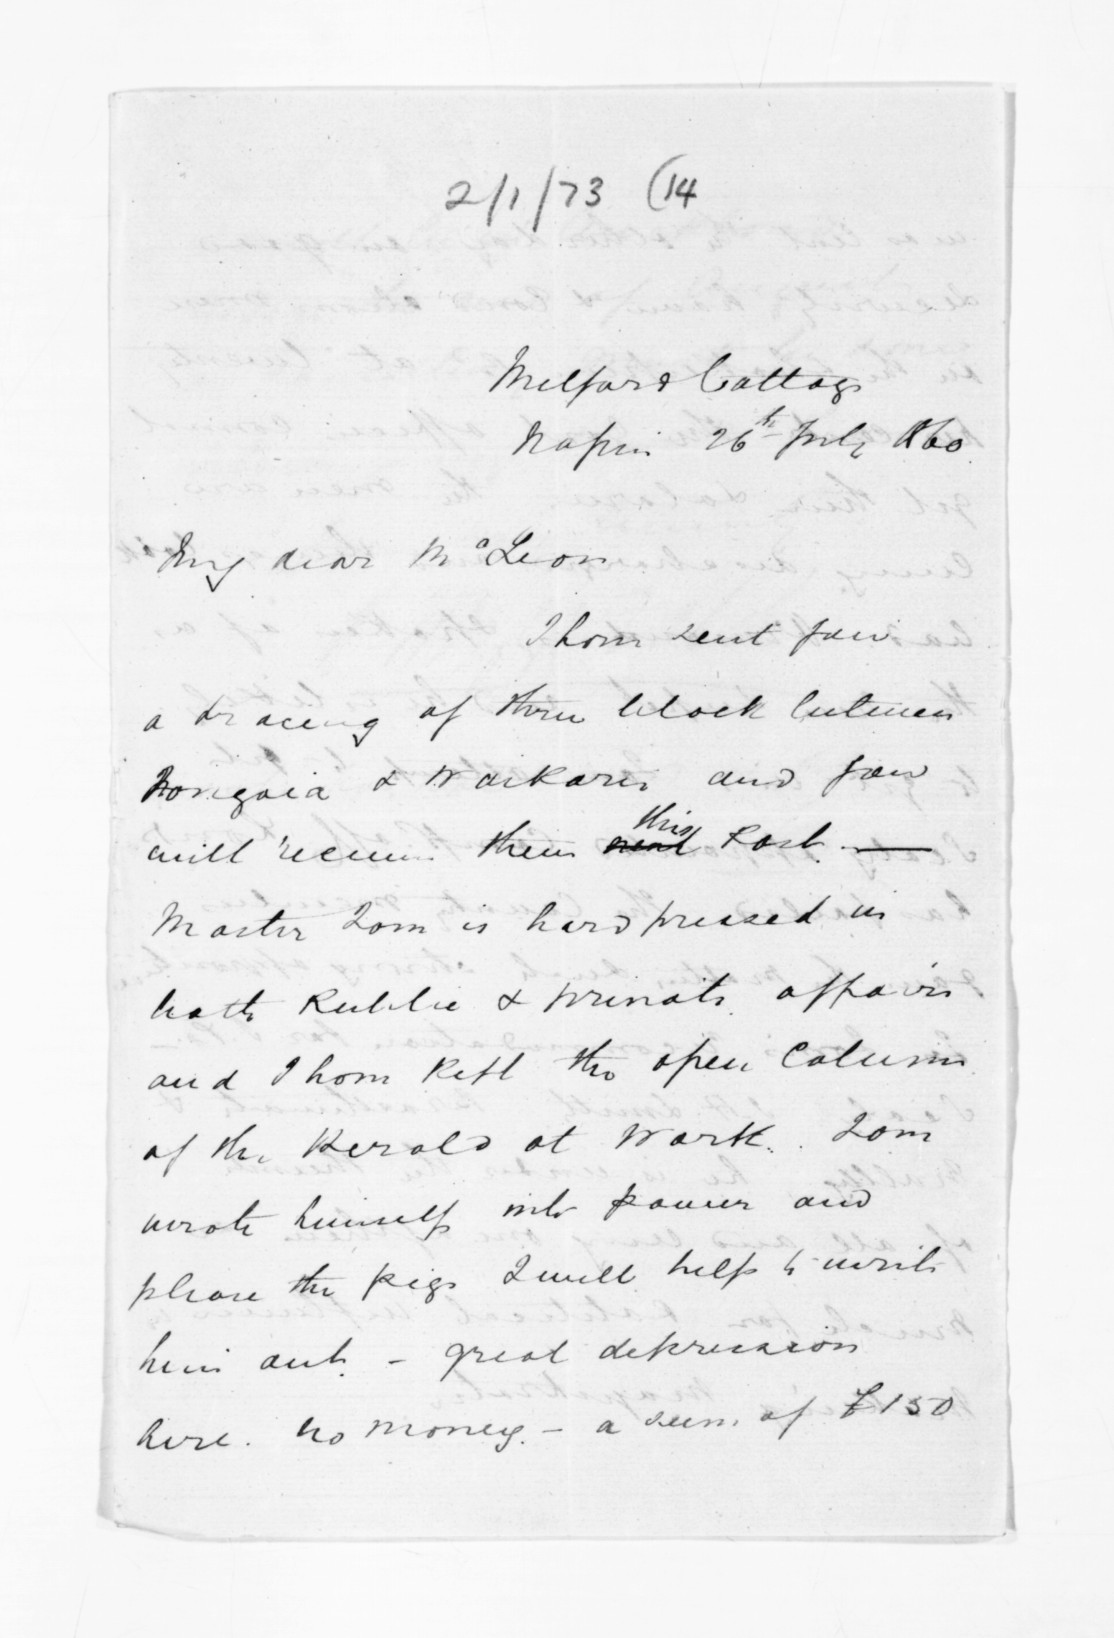 2/1/73 (14
Milford Cottage
Napier 26th July 1860.
My dear McLean
I have sent you
a tracing of three block between
& Waikari and you
will receive them this Post. —
Master Tom is hard pressed in
both Public & private affairs
and I have kept the open Column
of the Herald at Work. Tom
wrote himself into power and
please the pigs I will help to write
him out. – great depression
here. no money. – a sum of £150